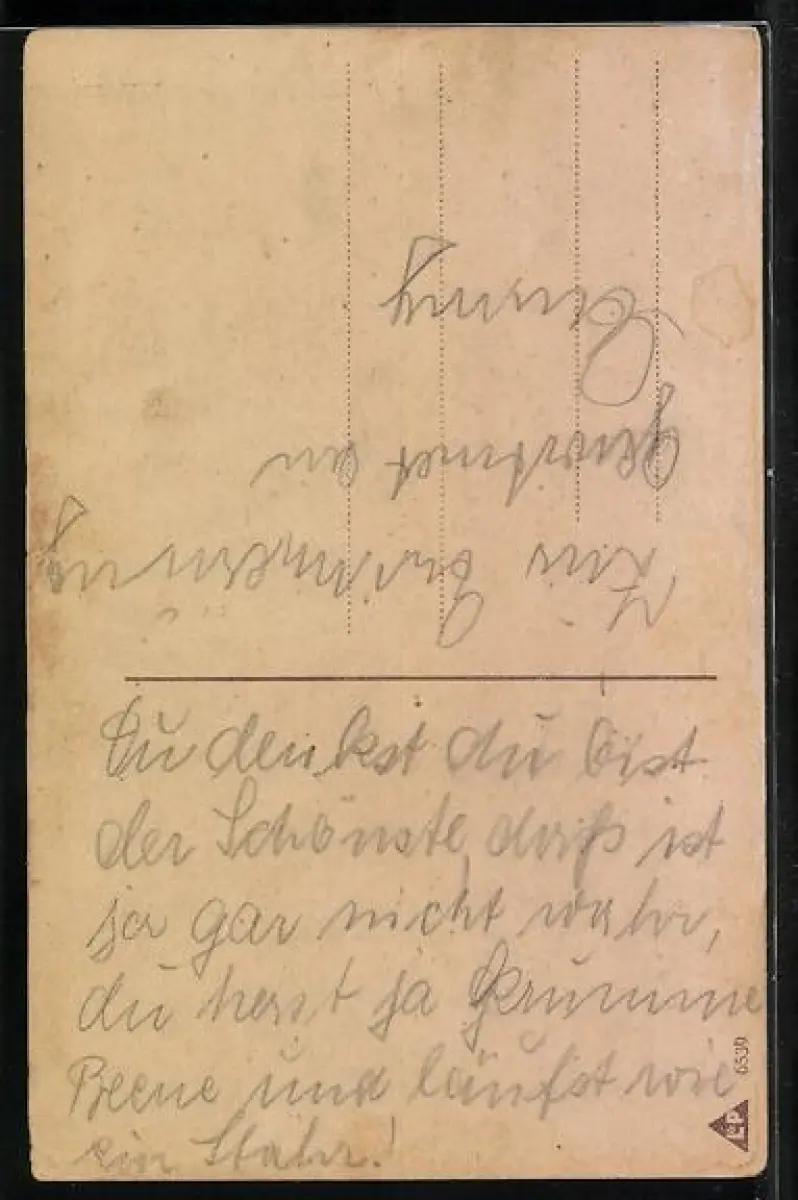 Du denkst du bist
der Schönste, daß ist
ja gar nicht wahr,
du hast ja krumme
Beene und läufst wie
ein Stahr!
Zur Erinnerung
Gewidmet
6530
L&P